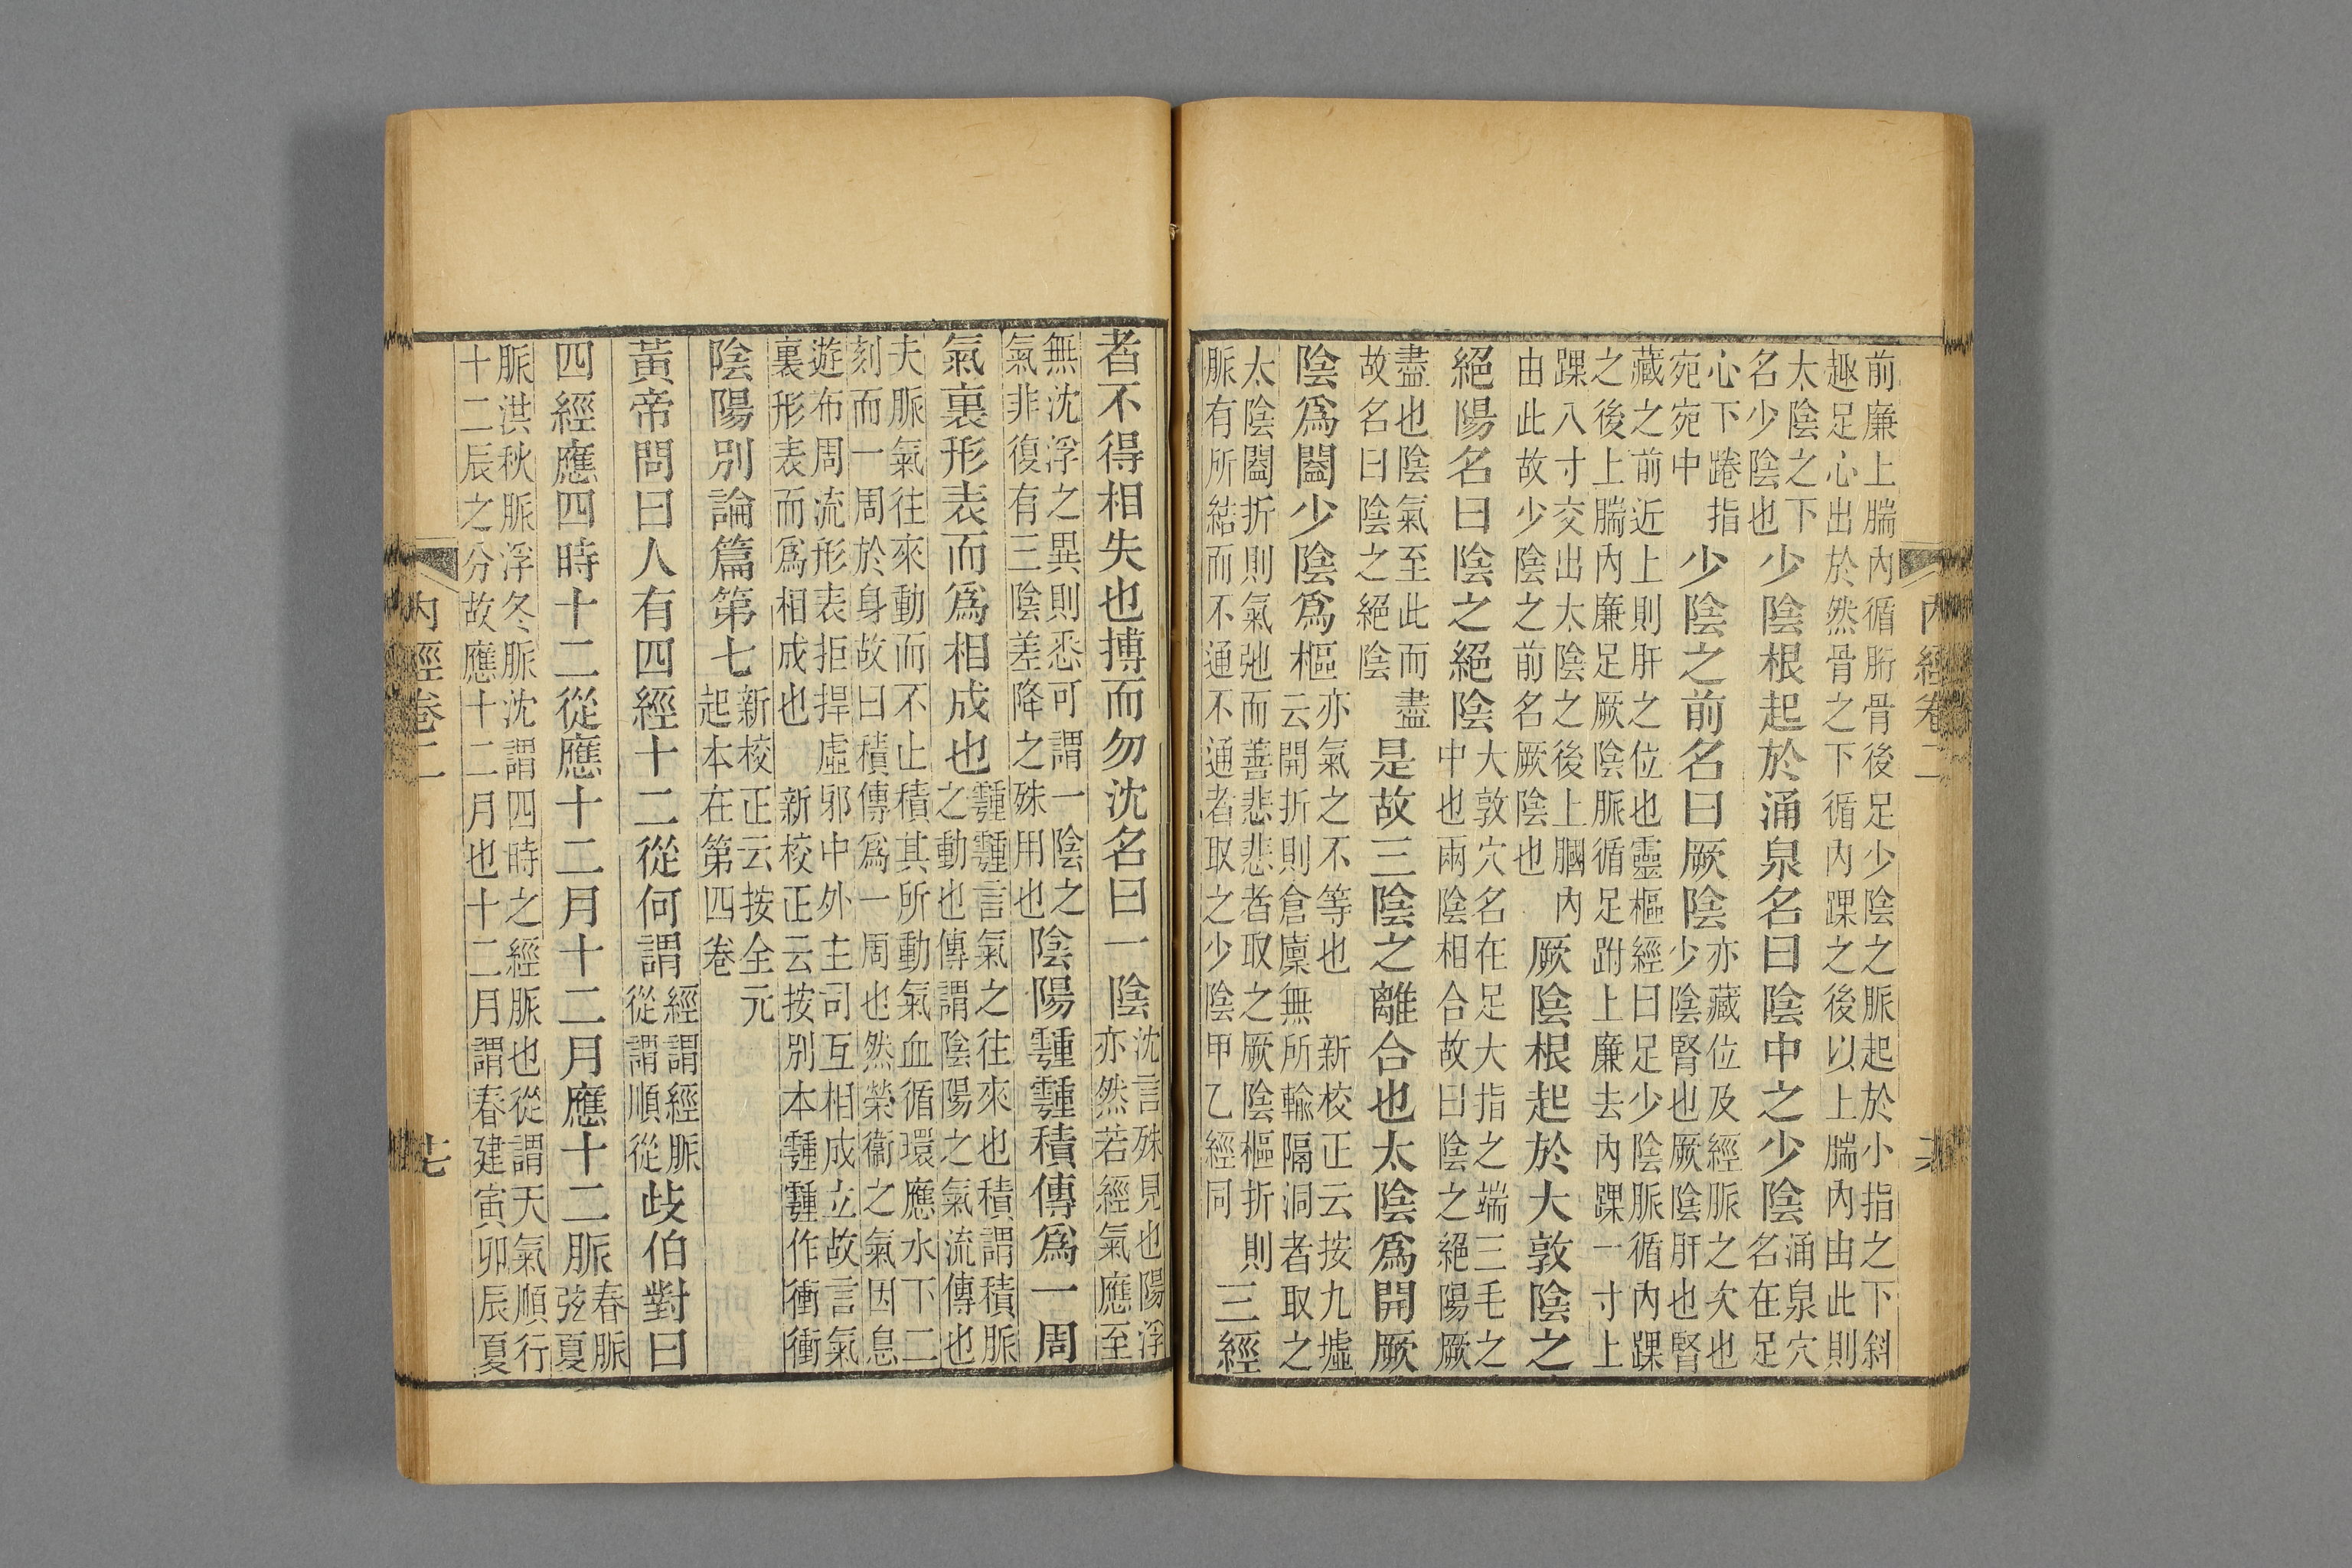 前廉上腨內循䯒骨後足少陰之脈起於小指之下斜
趣足心出於然骨之下循內踝之後以上腨內由此則
太陰之下
名少陰也
少陰根起於涌泉名曰陰中之少陰
涌泉穴
名在足
心下踡指
宛宛中
少陰之前名曰厥陰
亦藏位及經脈之次也
少陰腎也厥陰肝也腎
藏之前近上則肝之位也靈樞經曰足少陰脈循內踝
之後上腨內廉足厥陰脈循足跗上廉去內踝一寸上
踝八寸交出太陰之後上膕內
由此故少陰之前名厥陰也
厥陰根起於大敦陰之
絕陽名曰陰之絕陰
大敦穴名在足大指之端三毛之
中也兩陰相合故曰陰之絕陽厥
盡也陰氣至此而盡
故名曰陰之絕陰
是故三陰之離合也太陰爲開厥
陰爲闔少陰爲樞
亦氣之不等也 新校正云按九墟
云開折則倉廩無所輸隔洞者取之
太陰闔折則氣弛而善悲悲者取之厥陰樞折則
脈有所結而不通不通者取之少陰甲乙經同
三經
內經卷二
者不得相失也搏而勿沈名曰一陰
沈言殊見也陽浮
亦然若經氣應至
無沈浮之異則悉可謂一陰之
氣非復有三陰差降之殊用也
陰陽𩅞𩅞積傳爲一周
氣裏形表而爲相成也
𩅞𩅞言氣之往來也積謂積脈
之動也傳謂陰陽之氣流傳也
夫脈氣往來動而不止積其所動氣血循環應水下二
刻而一周於身故曰積傳爲一周也然榮衞之氣因息
遊布周流形表拒捍虛邪中外主司互相成立故言氣
裏形表而爲相成也 新校正云按別本𩅞𩅞作衝衝
陰陽別論篇第七
新校正云按全元
起本在第四卷
黃帝問曰人有四經十二從何謂
經謂經脈
從謂順從
歧伯對曰
四經應四時十二從應十二月十二月應十二脈
春脈
弦夏
脈洪秋脈浮冬脈沈謂四時之經脈也從謂天氣順行
十二辰之分故應十二月也十二月謂春建寅卯辰夏
內經卷二
十七